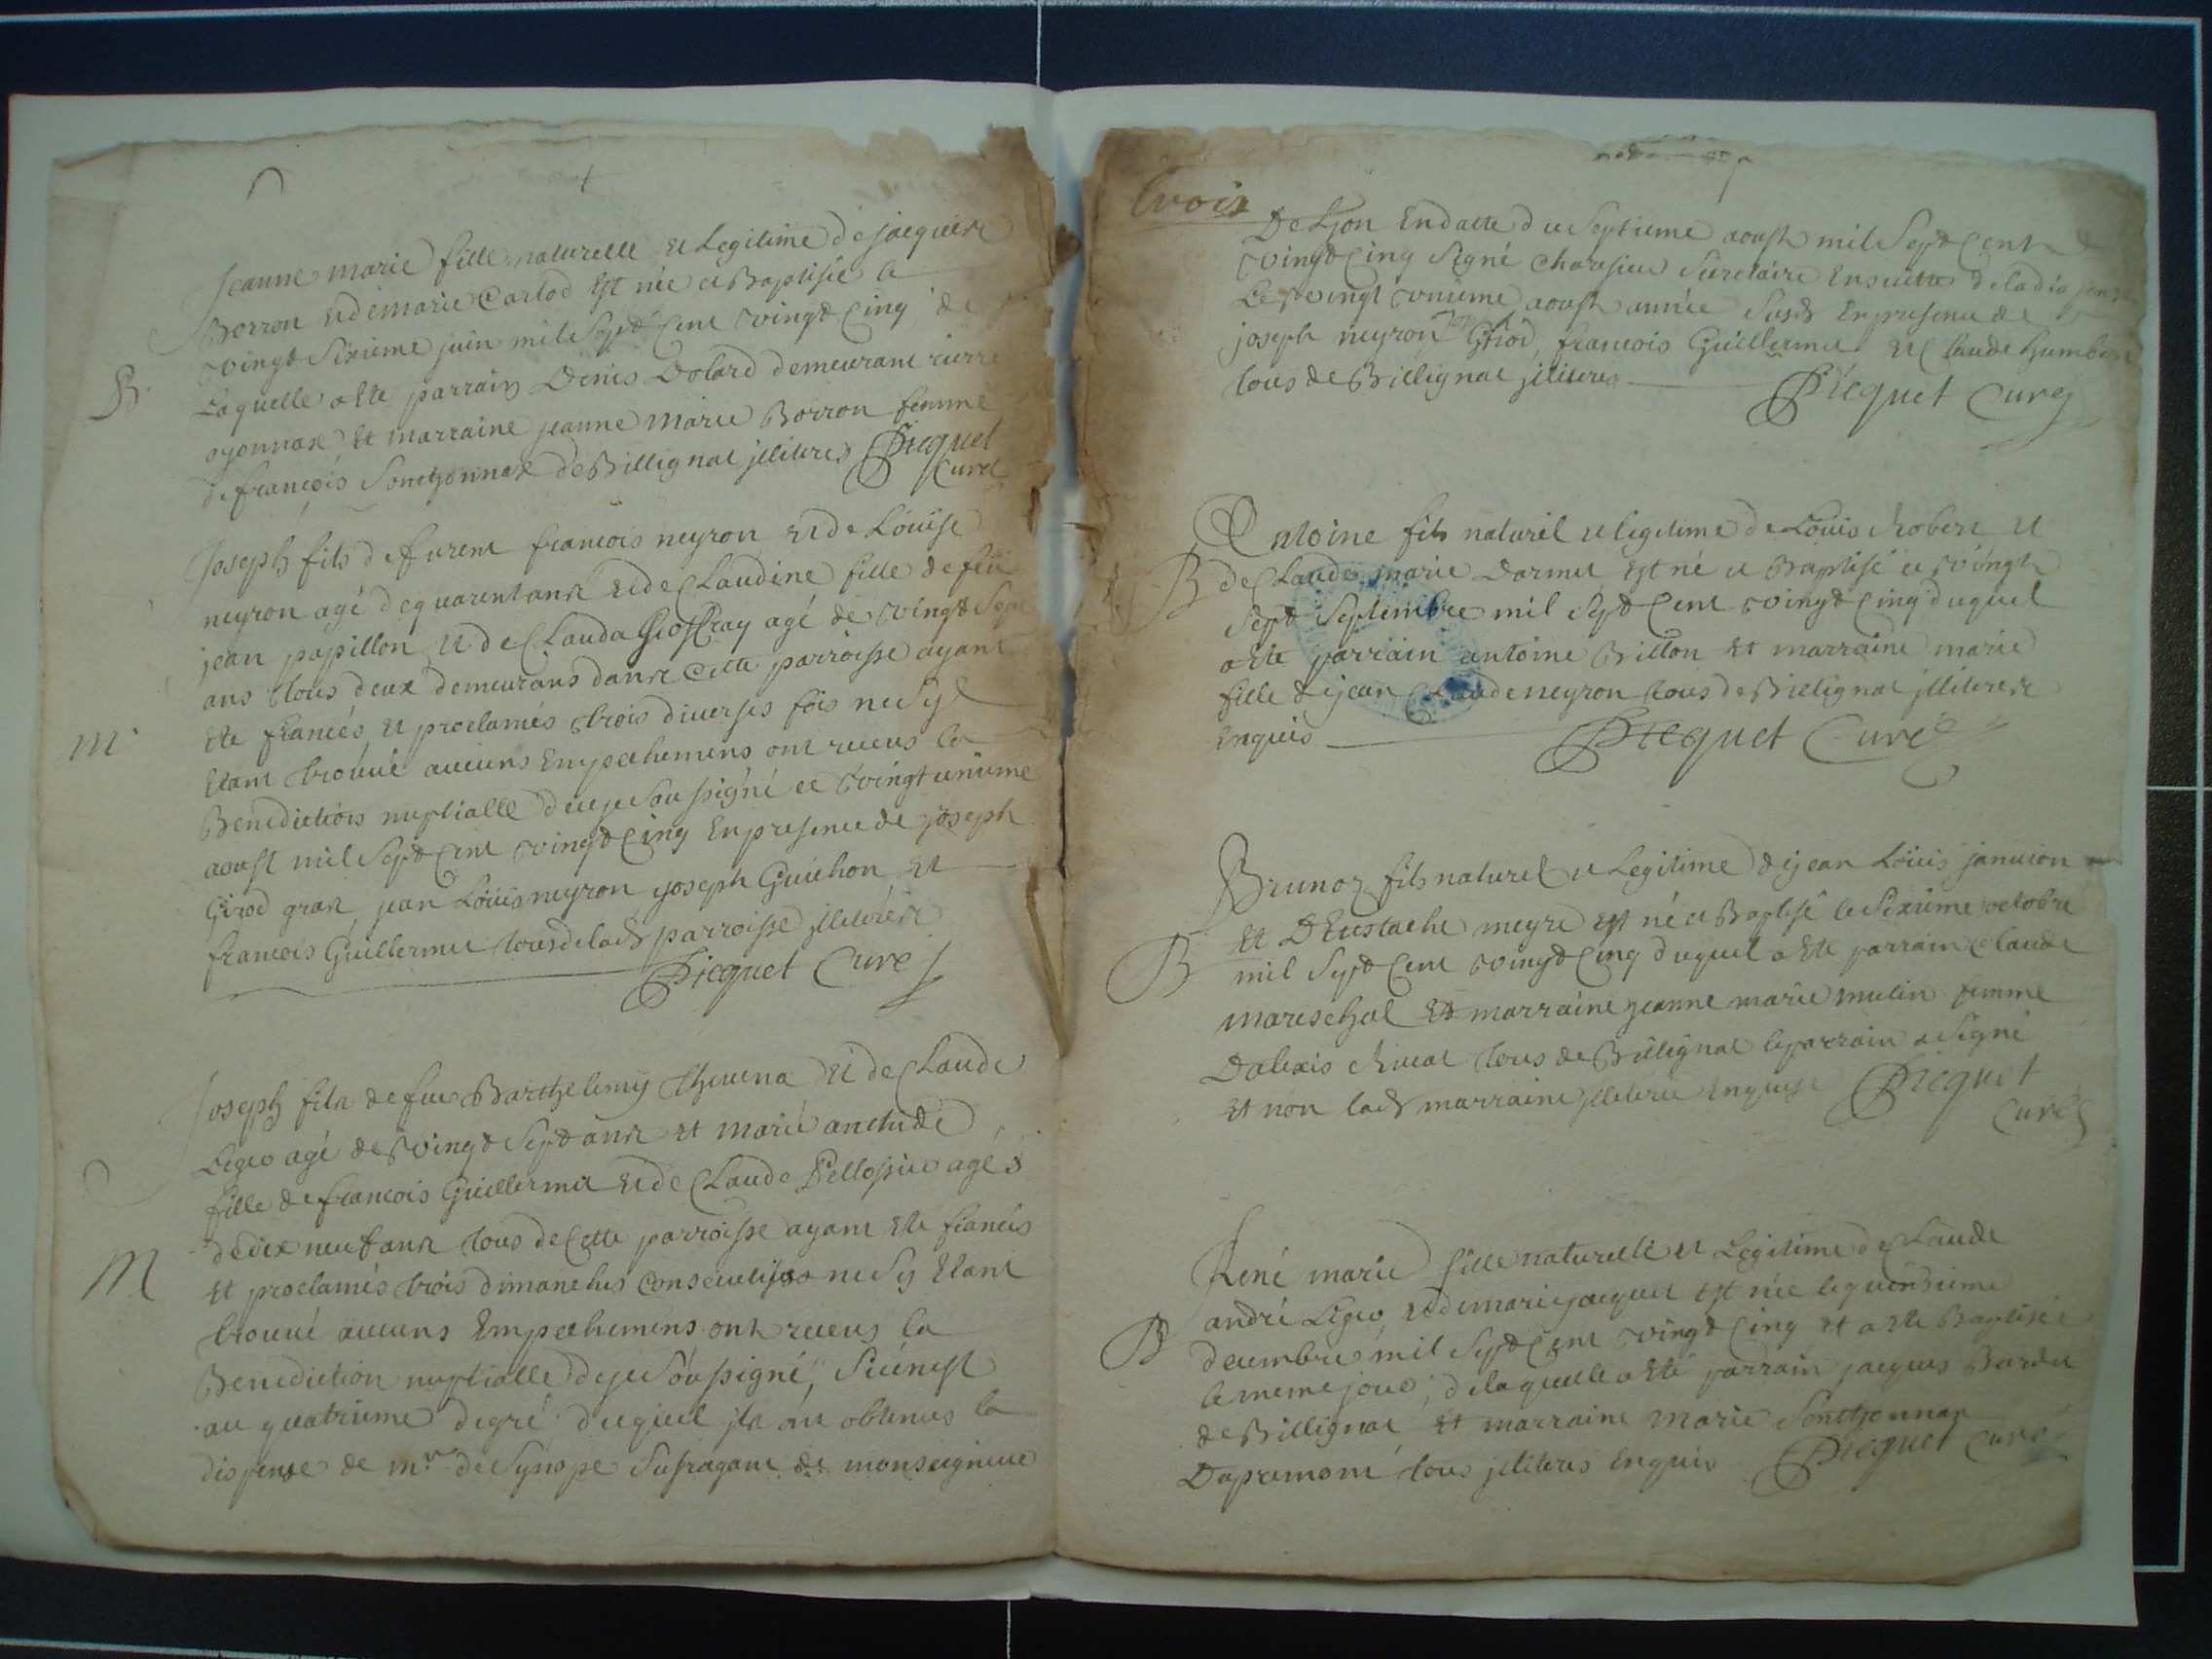 Jeanne marie fille naturelle et Legitime de jacques
Borron et de marie Carlod Est née et Baptisée le
vingt Sixieme juin mil Sept Cent vingt Cinq de
Laquelle a Eté parrain Denis Dolard demeurant rierre
oyonnax Et marraine jeanne Marie Borron femme
de francois Sonthonnax de Billignat jlliteres Picquet
Curé
B
Joseph fils de furent francois neyron et de Loüise
neyron agé de quarent ans et de Claudine fille de feu
jean papillon et de Clauda Gioffray agé de vingt Sept
ans tous deux demeurans dans Cette parroisse ayant
Eté fiancés et proclamés trois diverses fois ne Sy
Etant trouué aucuns Empechemens ont receus la
Benediction nuptialle de je Soussigné ce vingt unieme
aoust mil Sept Cent vingt Cinq En presence de joseph
Girod grax, jean Loüis neyron, joseph Guichon, et
francois Guillermet tous de lad parroisse jlliteres
Picquet Curé
M
Joseph fils de feu Barthelemy Thevena et de Claude
Leger agé de vingt Sept ans et Marie anthide
fille de francois Guillermet et de Claude Pellossie agés
de dix neuf ans tous de Cette parroisse ayant Eté fiancés
et proclamés trois dimanches Consecutifs ne Sy Etant
trouué aucuns Empechemens ont receus la
Benediction nuptialle de je Soussigné, Si cénest
au quatrieme degré duquel jls ont obtenus la
dispense de mr de Synope Sufragant de monseigneur
M
De Lyon En datte du Septieme aoust mil Sept Cent
vingt Cinq Signé Ensuitte de la dispense
Le vingt unieme aoust année Susd En presence de
joseph neyron Ghod, francois Guillermet et Claude humbert
tous de Billignat jlliteres
Picquet Curé
Antoine fils naturel et legitime de Louis Robert et
de Claude marie Dormet Est né et Baptisé ce vingt
Sept Septembre mil Sept Cent vingt Cinq duquel
a Eté parrain antoine Billon Et marraine marie
fille de jean Claude neyron tous de Billignat jlliteres
Enquis Picquet Curé
B
Brunoz fils naturel et Legitime de jean Loüis janvion
Et D Eustache meyre Est né et Baptisé le Sixieme octobre
mil Sept Cent vingt Cinq duquel a Eté parrain Claude
mareschal Et marraine jeanne marie mutin femme
Dalexis Rivat tous de Billignat le parrain a Signé
Et non lad marraine jlliterée Enquise Picquet
Curé
B
René marie fille naturelle et Legitime de Claude
andré Leger, et de marie jacquet Est née le quinzieme
decembre mil Sept Cent vingt Cinq et a Eté Baptisée
le meme jour, de laquelle a Eté parrain jacques Bardet
de Billignat Et marraine Marie Sonthonnax
Dapremont tous jlliteres Enquis Picquet Curé
B